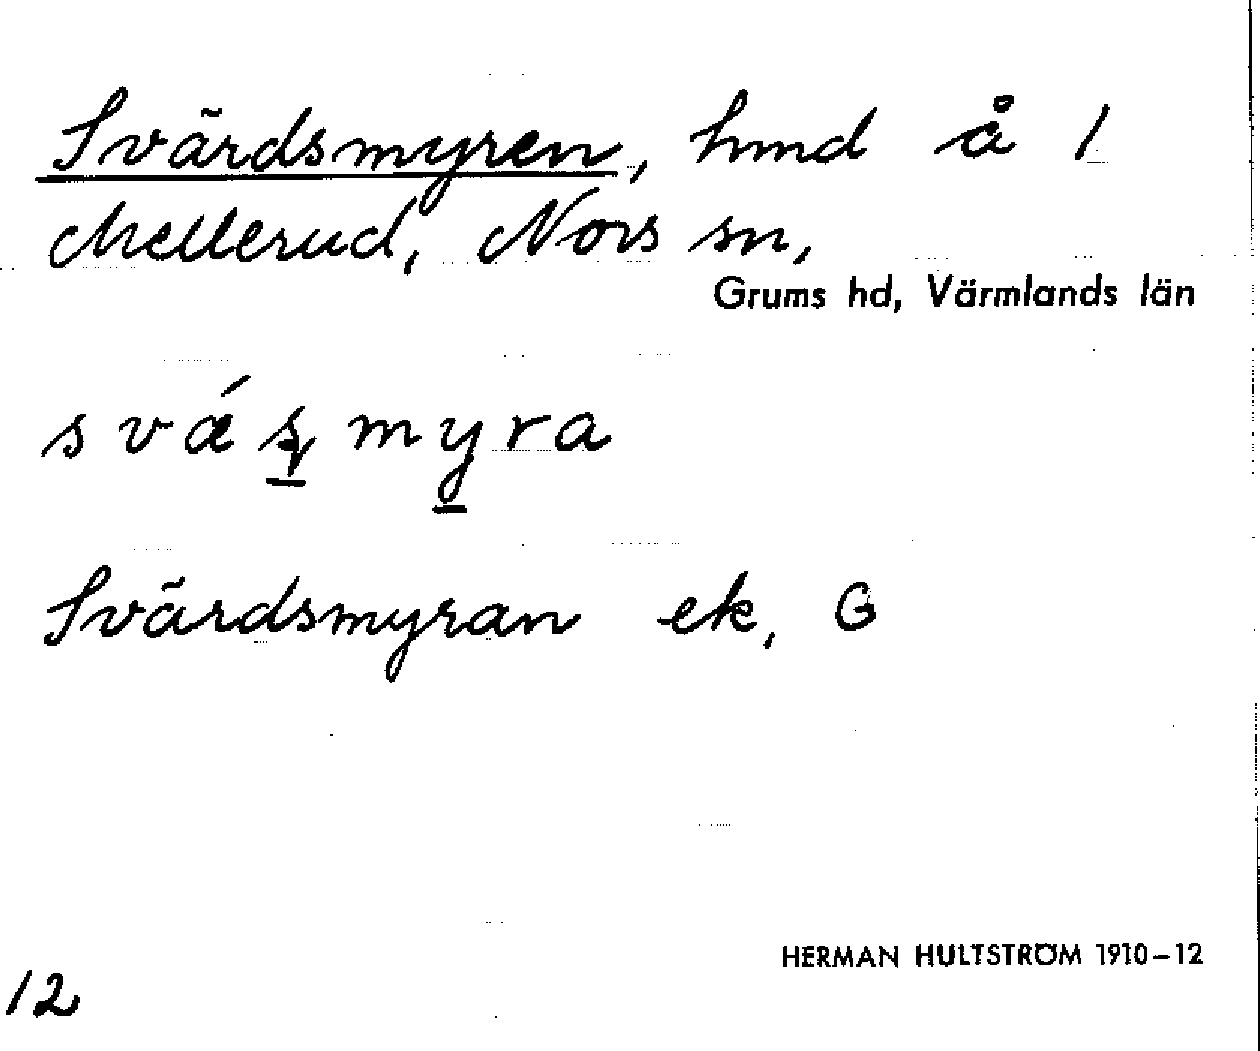 Svärdsmyren, hmd å 1
Mellerud, Nors sn,
Grums hd, Värmlands län
svǽʂmyra
Svärdsmyran ek, G
HERMAN HULTSTRÖM 1910–12
12